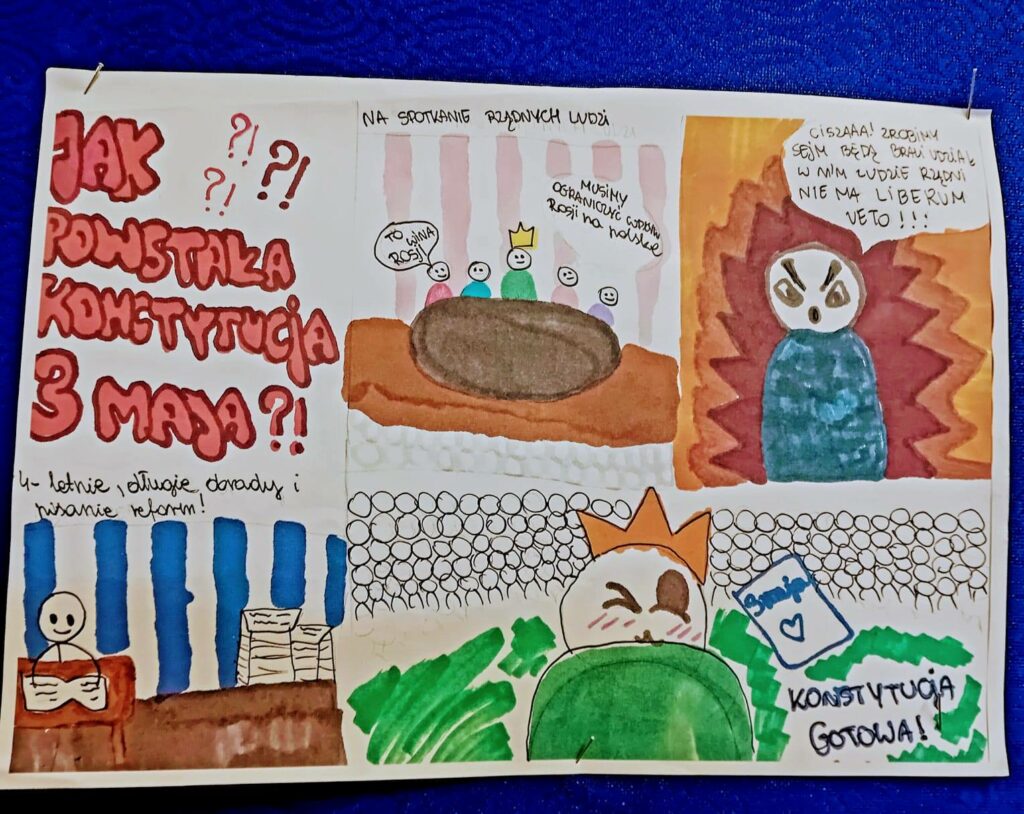 JAK
POWSTAŁA
KONSTYTUCJA
3 MAJA?!
?! ?!
?!
NA SPOTKANIE RZĄDNYCH LUDZI
TO WINA
ROSJI
MUSIMY
OGRANICZYĆ
ROSJI na polskę
CISZAAA! ZROBIMY
SEJM BĘDĄ BRALI UDZIAŁ
W NIM LUDZIE RZĄDNI
NIE MA LIBERUM
VETO!!!
4-letnie, długie, obrady i
pisanie reform!
3 maja
KONSTYTUCJA
GOTOWA!